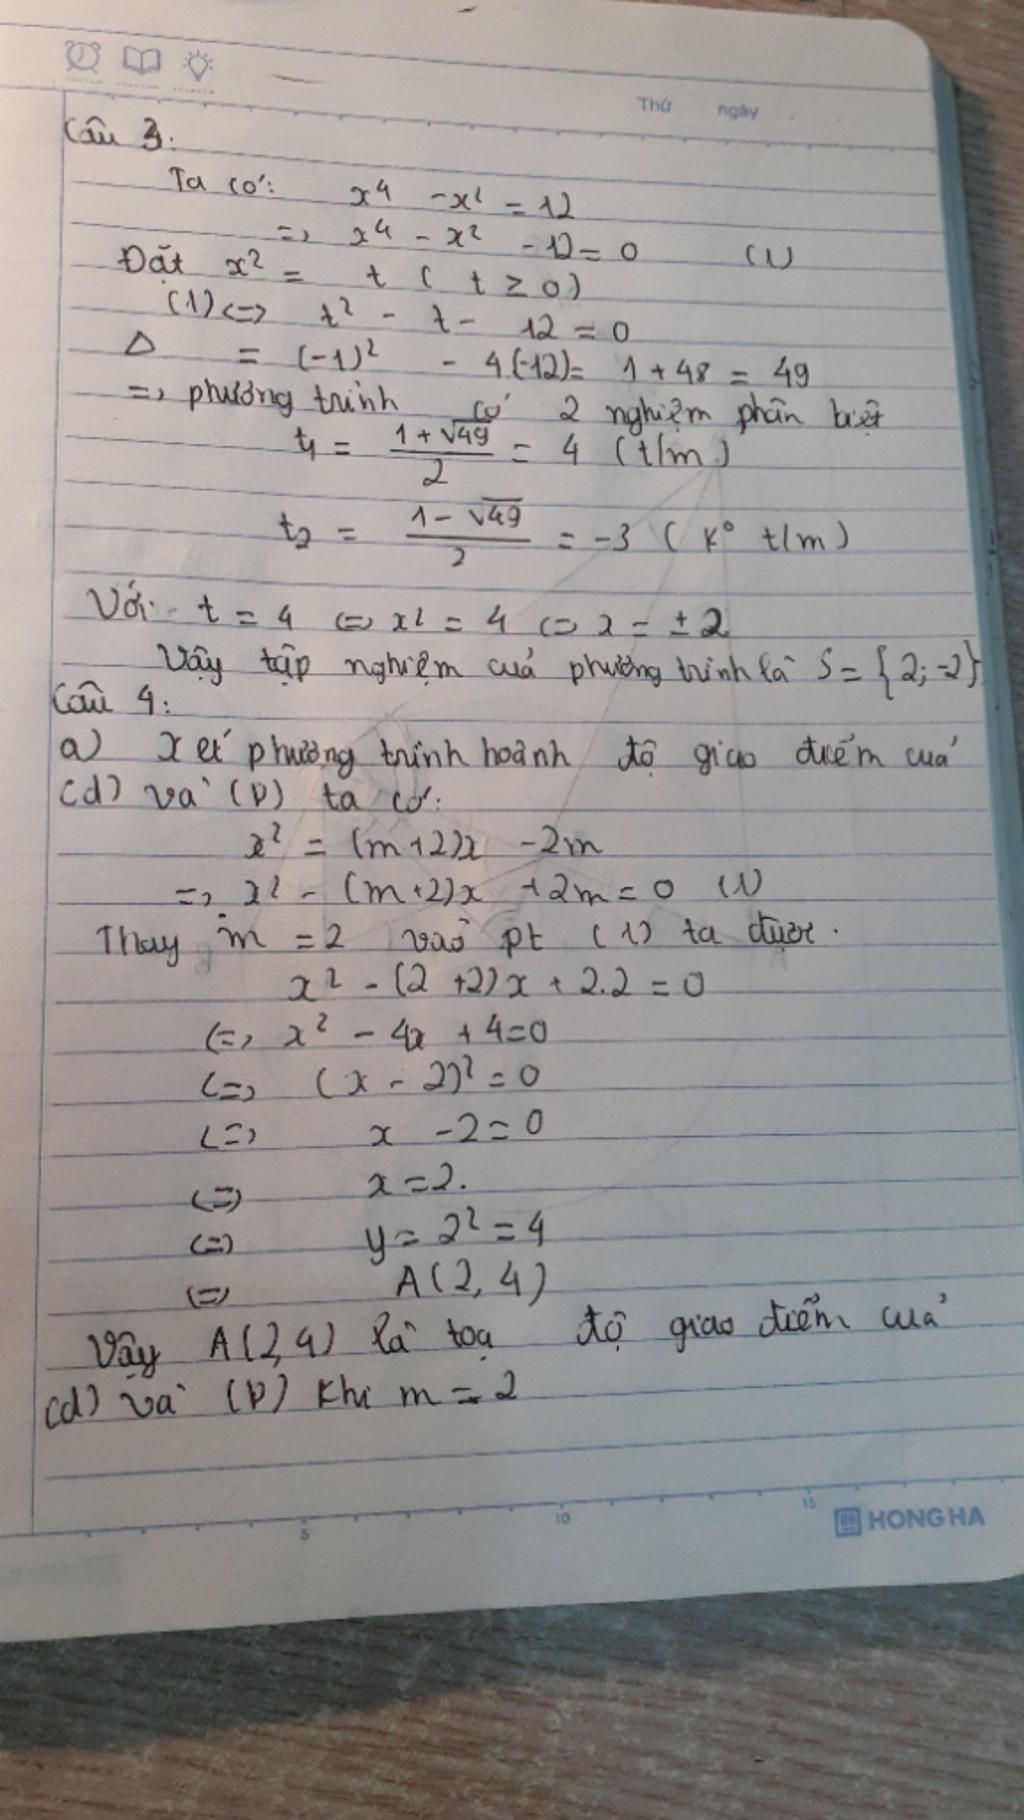 Thứ ngày
Câu 3:
Ta có: x⁴ - x² = 12
=> x⁴ - x² - 12 = 0 (1)
Đặt x² = t ( t ≥ 0)
(1) <=> t² - t - 12 = 0
Δ = (-1)² - 4.(-12) = 1 + 48 = 49
=> phương trình có 2 nghiệm phân biệt
t₁ = (1 + √49)/2 = 4 (t/m)
t₂ = (1 - √49)/2 = -3 ( k° t/m)
Với: t = 4 <=> x² = 4 <=> x = ± 2
Vậy tập nghiệm của phương trình là S = {2; -2}
Câu 4:
a) Xét phương trình hoành độ giao điểm của
(d) và (P) ta có:
x² = (m+2)x - 2m
=> x² - (m+2)x + 2m = 0 (1)
Thay m = 2 vào pt (1) ta được.
x² - (2+2)x + 2.2 = 0
<=> x² - 4x + 4 = 0
<=> (x - 2)² = 0
<=> x - 2 = 0
<=> x = 2.
<=> y = 2² = 4
<=> A(2, 4)
Vậy A(2,4) là toạ độ giao điểm của
(d) và (P) khi m = 2
5 10 15
HONG HA